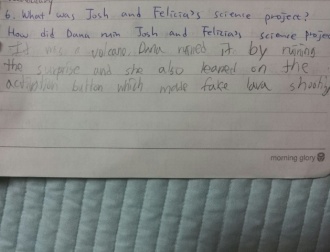 6. What was Josh and Felicia's science project?
How did Dana ruin Josh and Felicia's science projec
It was a volcano. Dana ruined it by ruining
the surprise and she also leaned on the
activation button which made fake lava shooting
morning glory